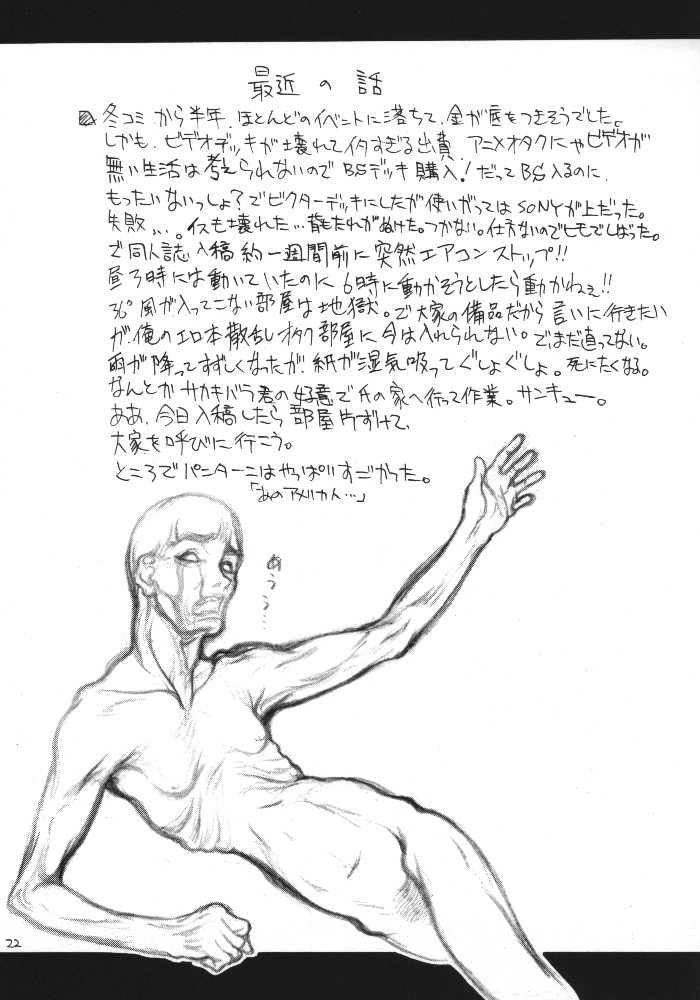 最近の話
冬コミから半年、ほとんどのイベントに落ちて、金が底をつきそうでした。
しかも、ビデオデッキが壊れてイタすぎる出費 アニメオタクにゃビデオが
無い生活は考えられないのでBSデッキ購入!だってBS入るのに、
もったいないっしょ?でビクターデッキにしたが使いがってはSONYが上だった。
失敗、、、。イスも壊れた…背もたれがぬけた。つかない。仕方ないのでヒモでしばった。
で同人誌入稿約一週間前に突然エアコンストップ!!
昼3時には動いていたのに6時に動かそうとしたら動かねぇ!!
36°風が入ってこない部屋は地獄。で大家の備品だから言いに行きたい
が、俺のエロ本散乱オタク部屋に今は入れられない。でまだ直ってない。
雨が降ってすずしくなったが、紙が湿気吸ってぐしょぐしょ。死にたくなる。
なんとかサカキバラ君の好意で氏の家へ行って作業。サンキュー。
ああ、今日入稿したら部屋片ずけて、
大家を呼びに行こう。
ところでパンターニはやっぱりすごかった。
「あのアメリカ人…」
あうう…
22